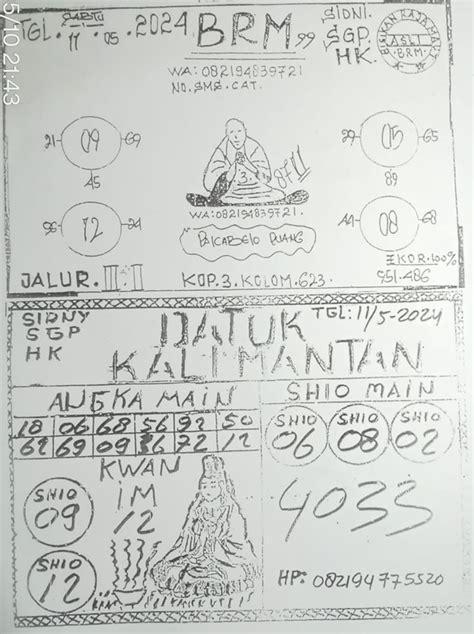 5/10 21:43
SABTU
TGL. 11 . 05 . 2024
BRM 99
SIDNI.
SGP.
HK.
BISIKAN RAJA MAUT
ASLI
BRM
WA: 082194839721
NO.SMS.CAT.
21 09 69
45
29 05 65
89
3
1178
96 12 24
WA:082194839721.
44 08 68
EKOR.100%
951.486
JALUR. III-II
KOP.3.KOLOM.623.
SIDNY
SGP
HK
DATUK
KALIMANTAN
TGL:11/5-2024
ANGKA MAIN
18 06 68 56 92 50
69 09 72 12
SHIO MAIN
SHIO 06
SHIO 08
SHIO 02
KWAN
iM
12
SHIO
09
SHIO
12
4033
HP: 082194775520